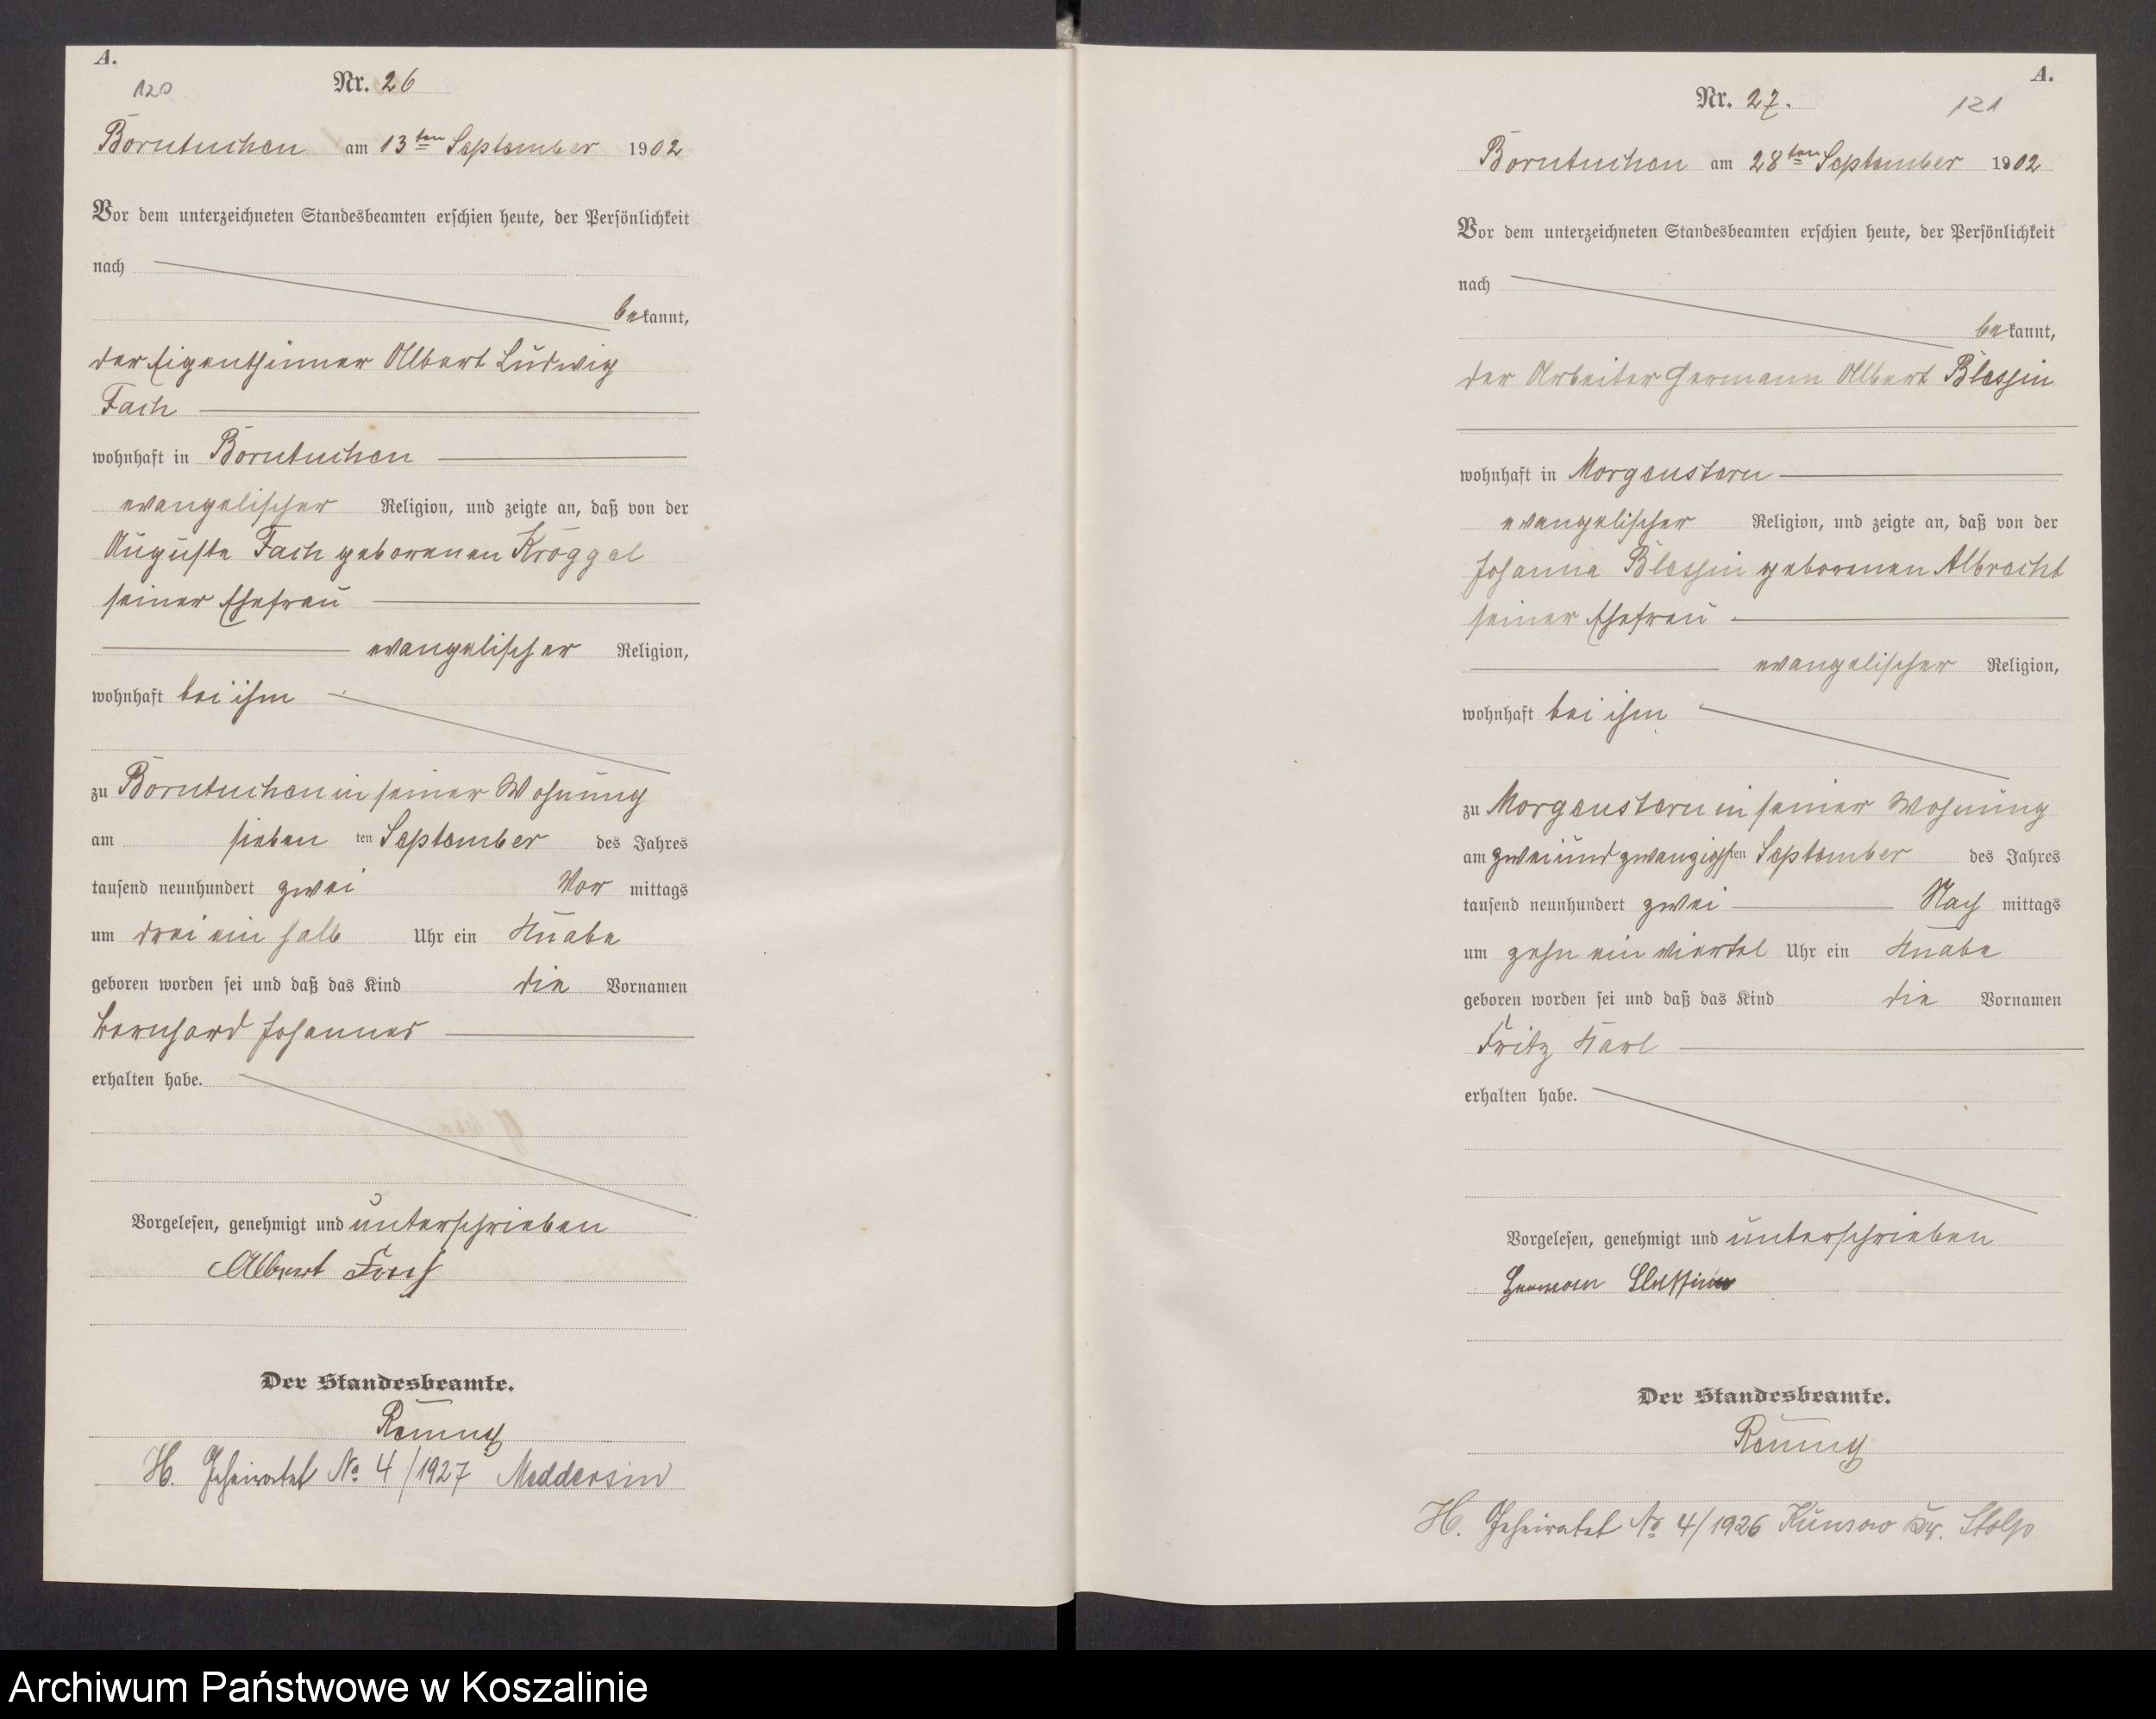 A.
120
Nr. 26
Borntuchen am 13ten September 1902
Vor dem unterzeichneten Standesbeamten erschien heute, der Persönlichkeit
nach
bekannt,
der Eigenthümer Albert Ludwig
Fach
wohnhaft in Borntuchen
evangelischer Religion, und zeigte an, daß von der
Auguste Fach geborenen Kroggel
seiner Ehefrau
evangelischer Religion,
wohnhaft bei ihm
zu Borntuchen in seiner Wohnung
am sieben ten September des Jahres
tausend neunhundert zwei Vor mittags
um drei ein halb Uhr ein Knabe
geboren worden sei und daß das Kind die Vornamen
Bernhard Johannes
erhalten habe.
Vorgelesen, genehmigt und unterschrieben
Albert Fach
Der Standesbeamte.
H. Geheiratet No 4/1927 Meddersin
A.
Nr. 27.
121
Borntuchen am 28ten September 1902
Vor dem unterzeichneten Standesbeamten erschien heute, der Persönlichkeit
nach
bekannt,
der Arbeiter Hermann Albert Blessin
wohnhaft in Morgenstern
evangelischer Religion, und zeigte an, daß von der
Johanna Blessin geborenen Albrecht
seiner Ehefrau
evangelischer Religion,
wohnhaft bei ihm
zu Morgenstern in seiner Wohnung
am zweiundzwanzigsten September des Jahres
tausend neunhundert zwei Nach mittags
um zehn ein viertel Uhr ein Knabe
geboren worden sei und daß das Kind die Vornamen
Fritz Karl
erhalten habe.
Vorgelesen, genehmigt und unterschrieben
Hermann Blessin
Der Standesbeamte.
H. Geheiratet No 4/1926 Kunsow Kr. Stolp
Archiwum Państwowe w Koszalinie